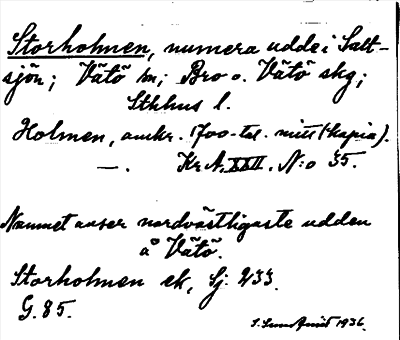 Storholmen, numera udde i Salt-
sjön; Vätö sn; Bro o. Vätö skg;
Sthlms l.
Holmen, omkr. 1700-tal. mitt (kopia).
—. Kr A. XXII. N:o 35.
Namnet avser nordvästligaste udden
å Vätö.
Storholmen ek, Sj. 233.
G. 85.
1936.